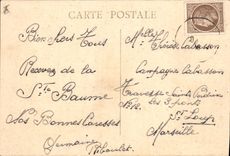 CARTE POSTALE
Bien chers Tous
Recevez de la
Ste Baume
Nos Bonnes Caresses
Germaine
Melles
Cabasson
Campagne Cabasson
Traverse
les 3 ponts
St Loup
Marseille